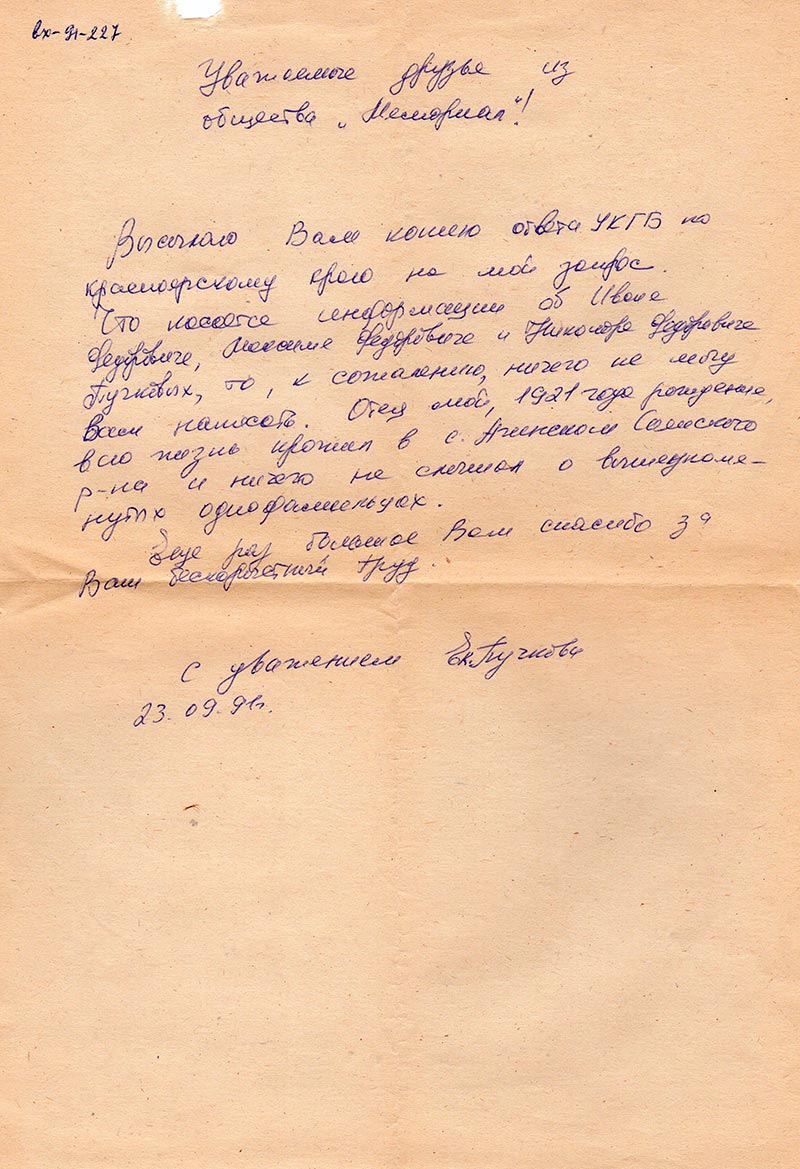 вх-91-227
Уважаемые друзья из
общества „Мемориал"!
Высылаю Вам копию ответа УКГБ по
красноярскому краю на мой запрос.
Что касается информации об Иване
Федоровиче, Максиме Федоровиче и Никифоре Федоровиче
Пучковых, то, к сожалению, ничего не могу
Вам написать. Отец мой, 1921 года рождения,
всю жизнь прожил в с. Агинском Саянского
р-на и ничего не слышал о вышеупомя-
нутых однофамильцах.
Еще раз большое Вам спасибо за
Ваш бескорыстный труд.
С уважением Ек.Пучкова
23.09.91г.